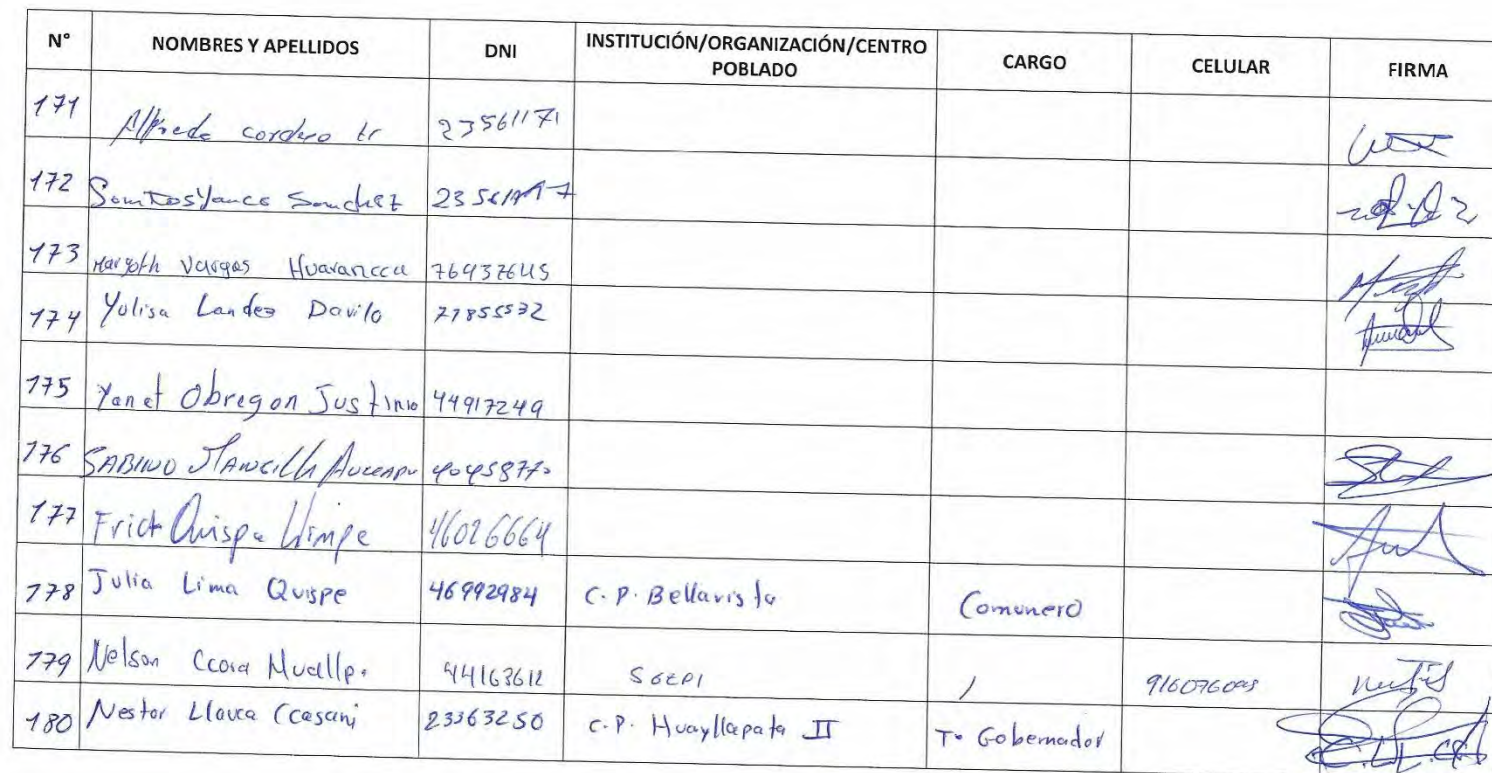 N° NOMBRES Y APELLIDOS DNI INSTITUCIÓN/ORGANIZACIÓN/CENTRO POBLADO CARGO CELULAR FIRMA
171 Alfredo cordero 23561171
172 Yance Sanchez
173 Margoth Vargas Huarancca 76937645
174 Yulisa Landeo Davila 71855532
175 Yanet Obregon Justinio 44917249
176 SABINO 40458770
177 Quispe 46026664
178 Julia Lima Quispe 46992984 C.P. Bellavista Comunero
179 Nelson Ccora 44163612 / 916076093
180 Nestor Llauca Ccasani 23363250 C.P. Huayllapata II T. Gobernador